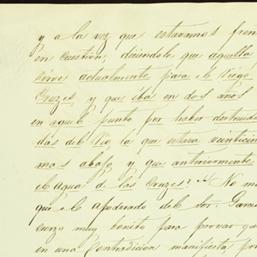 y a la vez que estuvimos fren
en Cuestion, diciendole que aquella
sirve actualmente para el riego
Cruzes y que iba en dos años
en aquel punto por haber
das del Rio la que
mas abajo y que anteriormente
el agua de las Cruzes? No me
que el apoderado del Sor. Garci
muy bonito para provar que
en una Contradicion manifiesta por